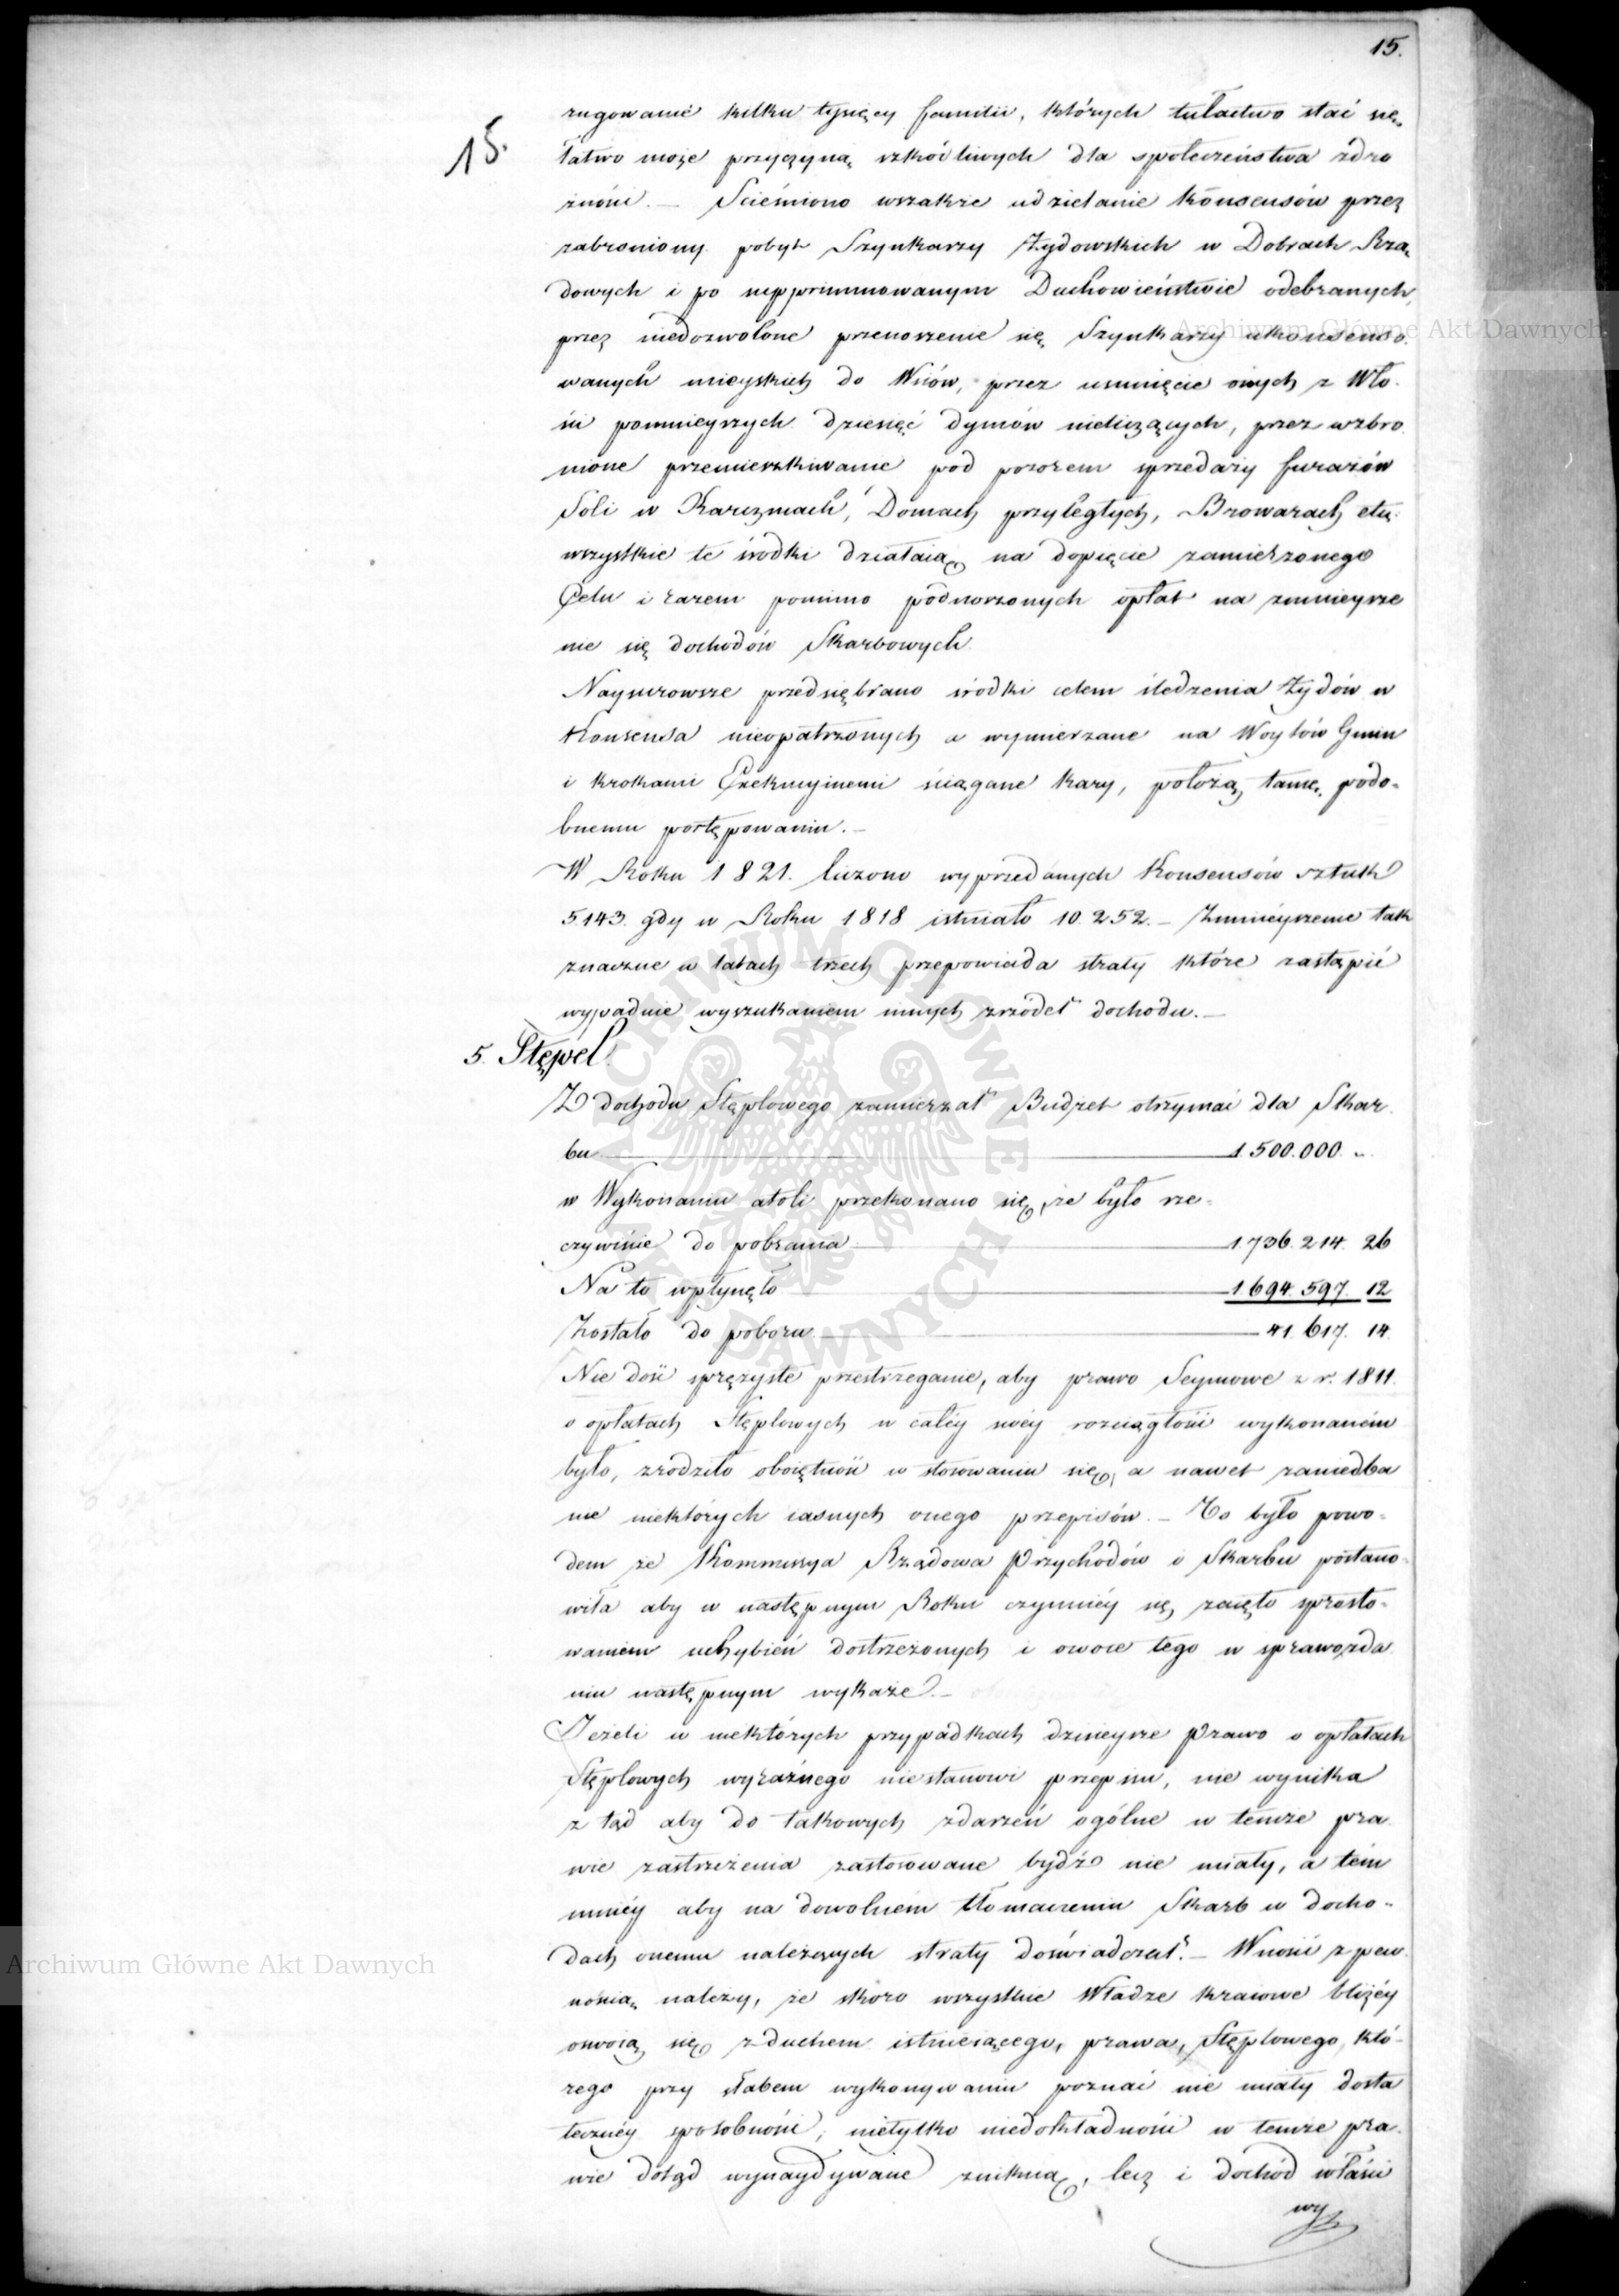 15.
15.
rugowanie kilku tysięcy familii, których tułactwo stać się
łatwo może przyczyną szkódliwych dla społeczeństwa zdro
żności. — Scieśniono wszakże udzielanie Konsensów przez
zabroniony pobyt Szynkarzy Żydowskich w Dobrach Rzą
dowych i po supprimmowanym Duchowieństwie odebranych,
przez niedozwolone przenoszenie się Szynkarzy ukonsenso
wanych mieyskich do Wsiów, przez usunięcie onych z Wło
ści pomnieyszych dziesięć dymów nieliczących, przez wzbro
nione przemieszkiwanie pod pozorem sprzedaży furażów
Soli w Karczmach, Domach przyległych, Browarach etc.
wszystkie te środki działaią na dopięcie zamierzonego
Celu i razem pomimo podnoszonych opłat na zmnieysze
nie się dochodów Skarbowych.
Naysurowsze przedsiębrano środki celem śledzenia Żydów w
Konsensa nieopatrzonych a wymierzane na Woytów Gmin
i krokami Exekucyinemi ściągane kary, położą tamę podo-
bnemu postępowaniu. —
W Roku 1821. liczono wyprzedanych Konsensów sztuk
5.143. gdy w Roku 1818 istniało 10.252. — Zmnieyszenie tak
znaczne w latach trzech przepowiada straty które zastąpić
wypadnie wyszukaniem innych zrzódeł dochodu. —
5. Stępel.
Z dochodu Stęplowego zamierzał Budżet otrzymać dla Skar
bu 1.500.000. „
w Wykonaniu atoli przekonano się, że było rze-
czywiście do pobrania 1.736.214. 26
Na to wpłynęło 1.694.597. 12
Zostało do poboru 41.617. 14.
Nie dość sprężyste przestrzeganie, aby prawo Seymowe z r. 1811.
o opłatach Stęplowych w całéy swéy rozciągłości wykonaném
było, zrodziło oboiętność w stosowaniu się, a nawet zaniedba
nie niektórych iasnych onego przepisów. — To było powo-
dem że Kommissya Rządowa Przychodów i Skarbu postano-
wiła aby w następnym Roku czynniéy się zaięto sprosto-
waniem uchybień dostrzeżonych i owoce tego w sprawozda
niu następnym wykaże. —
Jeżeli w niektórych przypadkach dzisieysze Prawo o opłatach
Stęplowych wyraźnego niestanowi przepisu, nie wynika
z tąd aby do takowych zdarzeń ogólne w temże pra
wie zastrzeżenia zastosowane bydź nie miały, a tém
mniéy aby na dowolném tłomaczeniu Skarb w docho-
dach onemu należnych straty doświadczał. — Wnosić z pew
nością należy, że skoro wszystkie Władze kraiowe bliżéy
oswoią się z duchem istnieiącego prawa Stęplowego, któ-
rego przy słabem wykonywaniu poznać nie miały dosta
tecznéy sposobności, nietylko niedokładności w temże pra
wie dotąd wynaydywane znikną, lecz i dochód właści
wy
Archiwum Główne Akt Dawnych
Archiwum Główne Akt Dawnych
ARCHIWUM GŁÓWNE AKT DAWNYCH